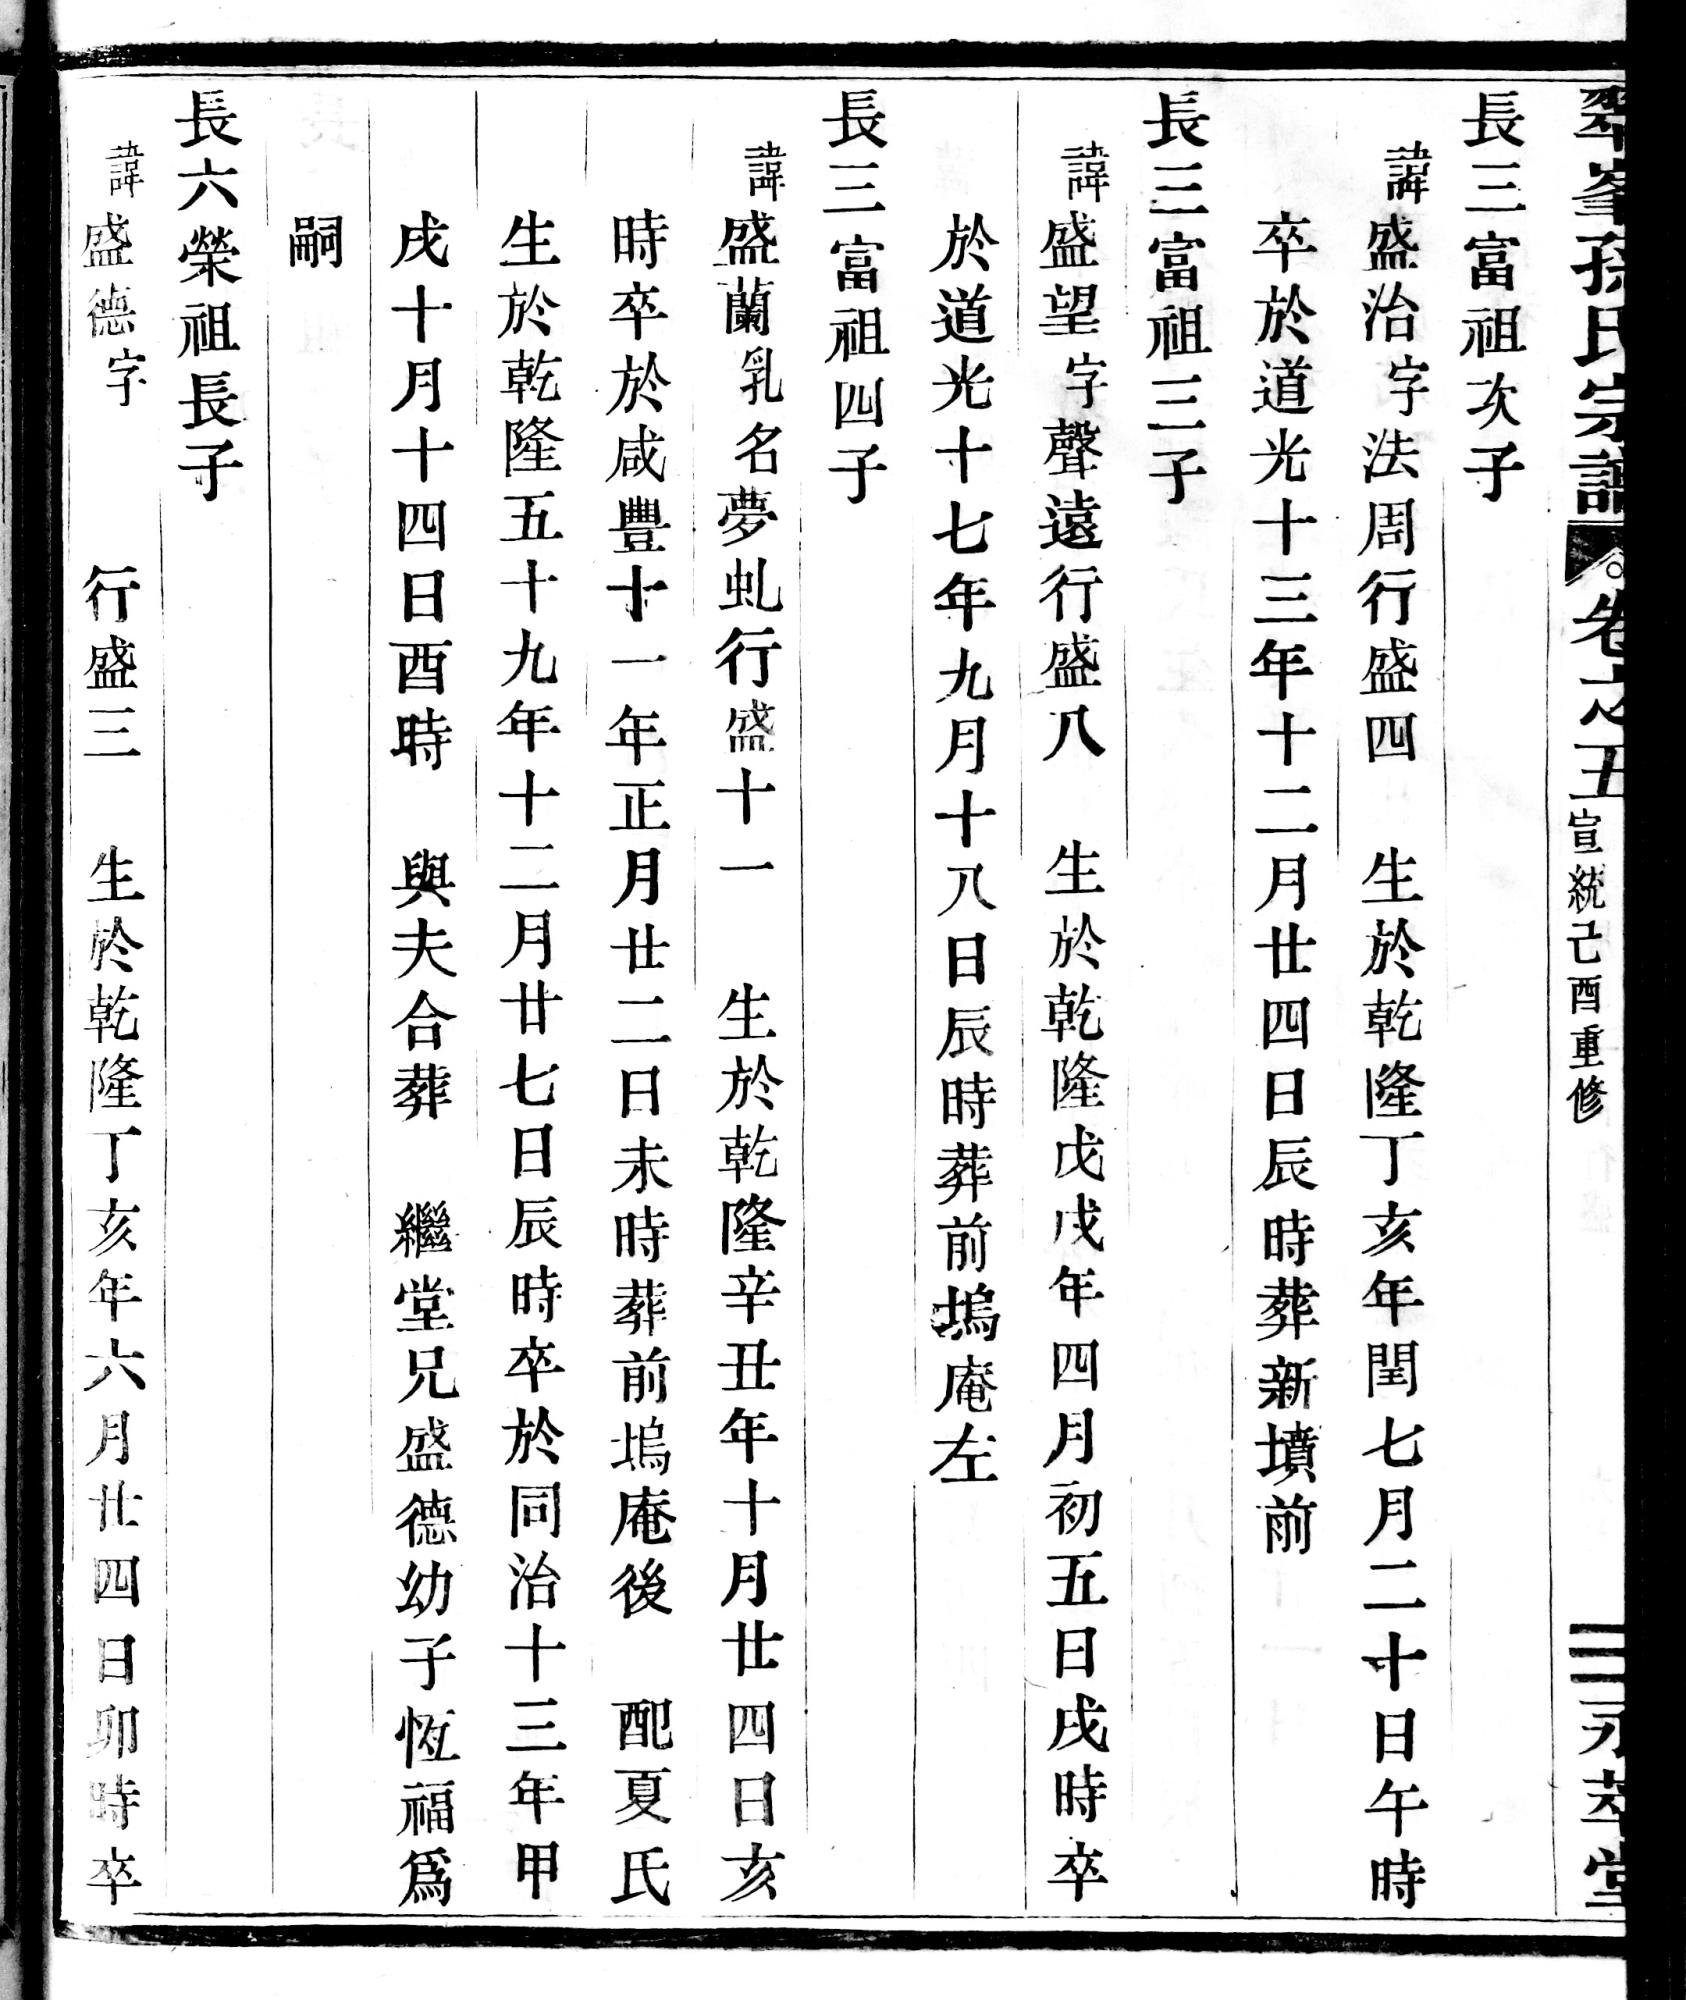 翠峯孫氏宗譜 卷之五 宣統己酉重修 二 永萃堂
長三富祖次子
諱盛治字法周行盛四 生於乾隆丁亥年閏七月二十日午時
卒於道光十三年十二月廿四日辰時葬新墳前
長三富祖三子
諱盛望字聲遠行盛八 生於乾隆戊戌年四月初五日戌時卒
於道光十七年九月十八日辰時葬前塢庵左
長三富祖四子
諱盛蘭乳名夢虬行盛十一 生於乾隆辛丑年十月廿四日亥
時卒於咸豐十一年正月廿二日未時葬前塢庵後 配夏氏
生於乾隆五十九年十二月廿七日辰時卒於同治十三年甲
戌十月十四日酉時 與夫合葬 繼堂兄盛德幼子恆福爲
嗣
長六榮祖長子
諱盛德字 行盛三 生於乾隆丁亥年六月廿四日卯時卒